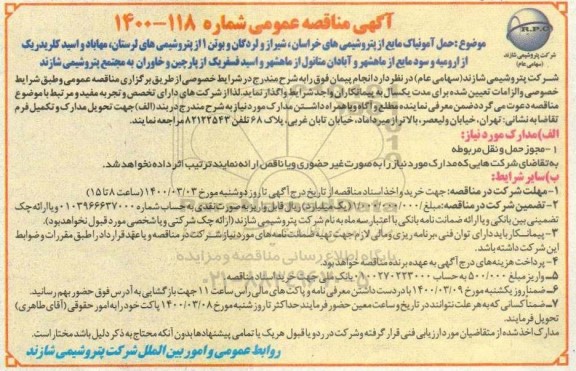 آگهی مناقصه عمومی شماره ۱۱۸-۱۴۰۰
R.P.C
شرکت پتروشیمی شازند
(سهامی عام)
موضوع: حمل آمونیاک مایع از پتروشیمی های خراسان، شیراز و لردگان و بوتن ۱ از پتروشیمی های لرستان، مهاباد و اسید کلریدریک
از ارومیه و سود مایع از ماهشهر و آبادان متانول از ماهشهر و اسید فسفریک از پارچین و خاوران به مجتمع پتروشیمی شازند
شرکت پتروشیمی شازند(سهامی عام) در نظر دارد انجام پیمان فوق را به شرح مندرج در شرایط خصوصی از طریق برگزاری مناقصه عمومی و طبق شرایط
خصوصی و الزامات تعیین شده برای مدت یکسال به پیمانکاران واجد شرایط واگذار نماید. لذا از شرکت های دارای تخصص و تجربه مفید و مرتبط با موضوع
مناقصه دعوت می گردد ضمن معرفی نماینده مطلع و آگاه و با همراه داشتن مدارک مورد نیاز به شرح مندرج در بند (الف) جهت تحویل مدارک و تکمیل فرم
تقاضا به نشانی: تهران، خیابان ولیعصر، بالاتر از میرداماد، خیابان تابان غربی، پلاک ۶۸ تلفن ۸۲۱۲۲۵۴۳ مراجعه نمایند.
الف)مدارک مورد نیاز:
۱-مجوز حمل و نقل مربوطه
به تقاضای شرکت هایی که مدارک مورد نیاز را به صورت غیر حضوری و یا ناقص ارائه نمایند ترتیب اثر داده نخواهد شد.
ب)سایر شرایط:
۱-مهلت شرکت در مناقصه: جهت خرید و اخذ اسناد مناقصه از تاریخ درج آگهی تا روز دوشنبه مورخ ۱۴۰۰/۰۳/۰۳ (ساعت ۸ تا ۱۵)
۲-تضمین شرکت در مناقصه: مبلغ ریال قابل واریز به صورت نقدی به حساب شماره ۰۱۰۳۹۶۶۶۳۷۰۰۰ و یا ارائه چک
تضمینی بین بانکی و یا ارائه ضمانت نامه بانکی با اعتبار سه ماه به نام شرکت پتروشیمی شازند (ارائه چک شرکتی و یا شخصی مورد قبول نخواهد بود).
۳-پیمانکار باید دارای توان فنی، برنامه ریزی و مالی لازم جهت تهیه ضمانت نامه های مورد نیاز شرکت در مناقصه و یا عقد قرارداد را طبق مقررات و ضوابط
این شرکت داشته باشد.
۴-پرداخت هزینه های درج آگهی به عهده برنده مناقصه خواهد بود.
۵-واریز مبلغ ۵۰۰/۰۰۰ به حساب ۰۱۰۲۷۰۲۲۳۰۰۰ بانک ملی جهت خرید اسناد مناقصه
۶-ضمناً روز یکشنبه مورخ ۱۴۰۰/۰۳/۰۹ با در دست داشتن معرفی نامه و پاکت های مالی راس ساعت ۱۱ جهت بازگشایی به آدرس فوق حضور بهم رسانید.
۷-ضمناً کسانی که به هر علت نتوانند در تاریخ و ساعت معین حضور فرمایند حداکثر تا روز شنبه مورخ ۱۴۰۰/۰۳/۰۸ پاکت خود را به امور حقوقی (آقای طاهری)
تحویل فرمایند.
مدارک اخذ شده از متقاضیان مورد ارزیابی فنی قرار گرفته و شرکت در رد و یا قبول هر یک یا تمامی پیشنهادها بدون آنکه محتاج به ذکر دلیل باشد مختار است.
روابط عمومی و امور بین الملل شرکت پتروشیمی شازند